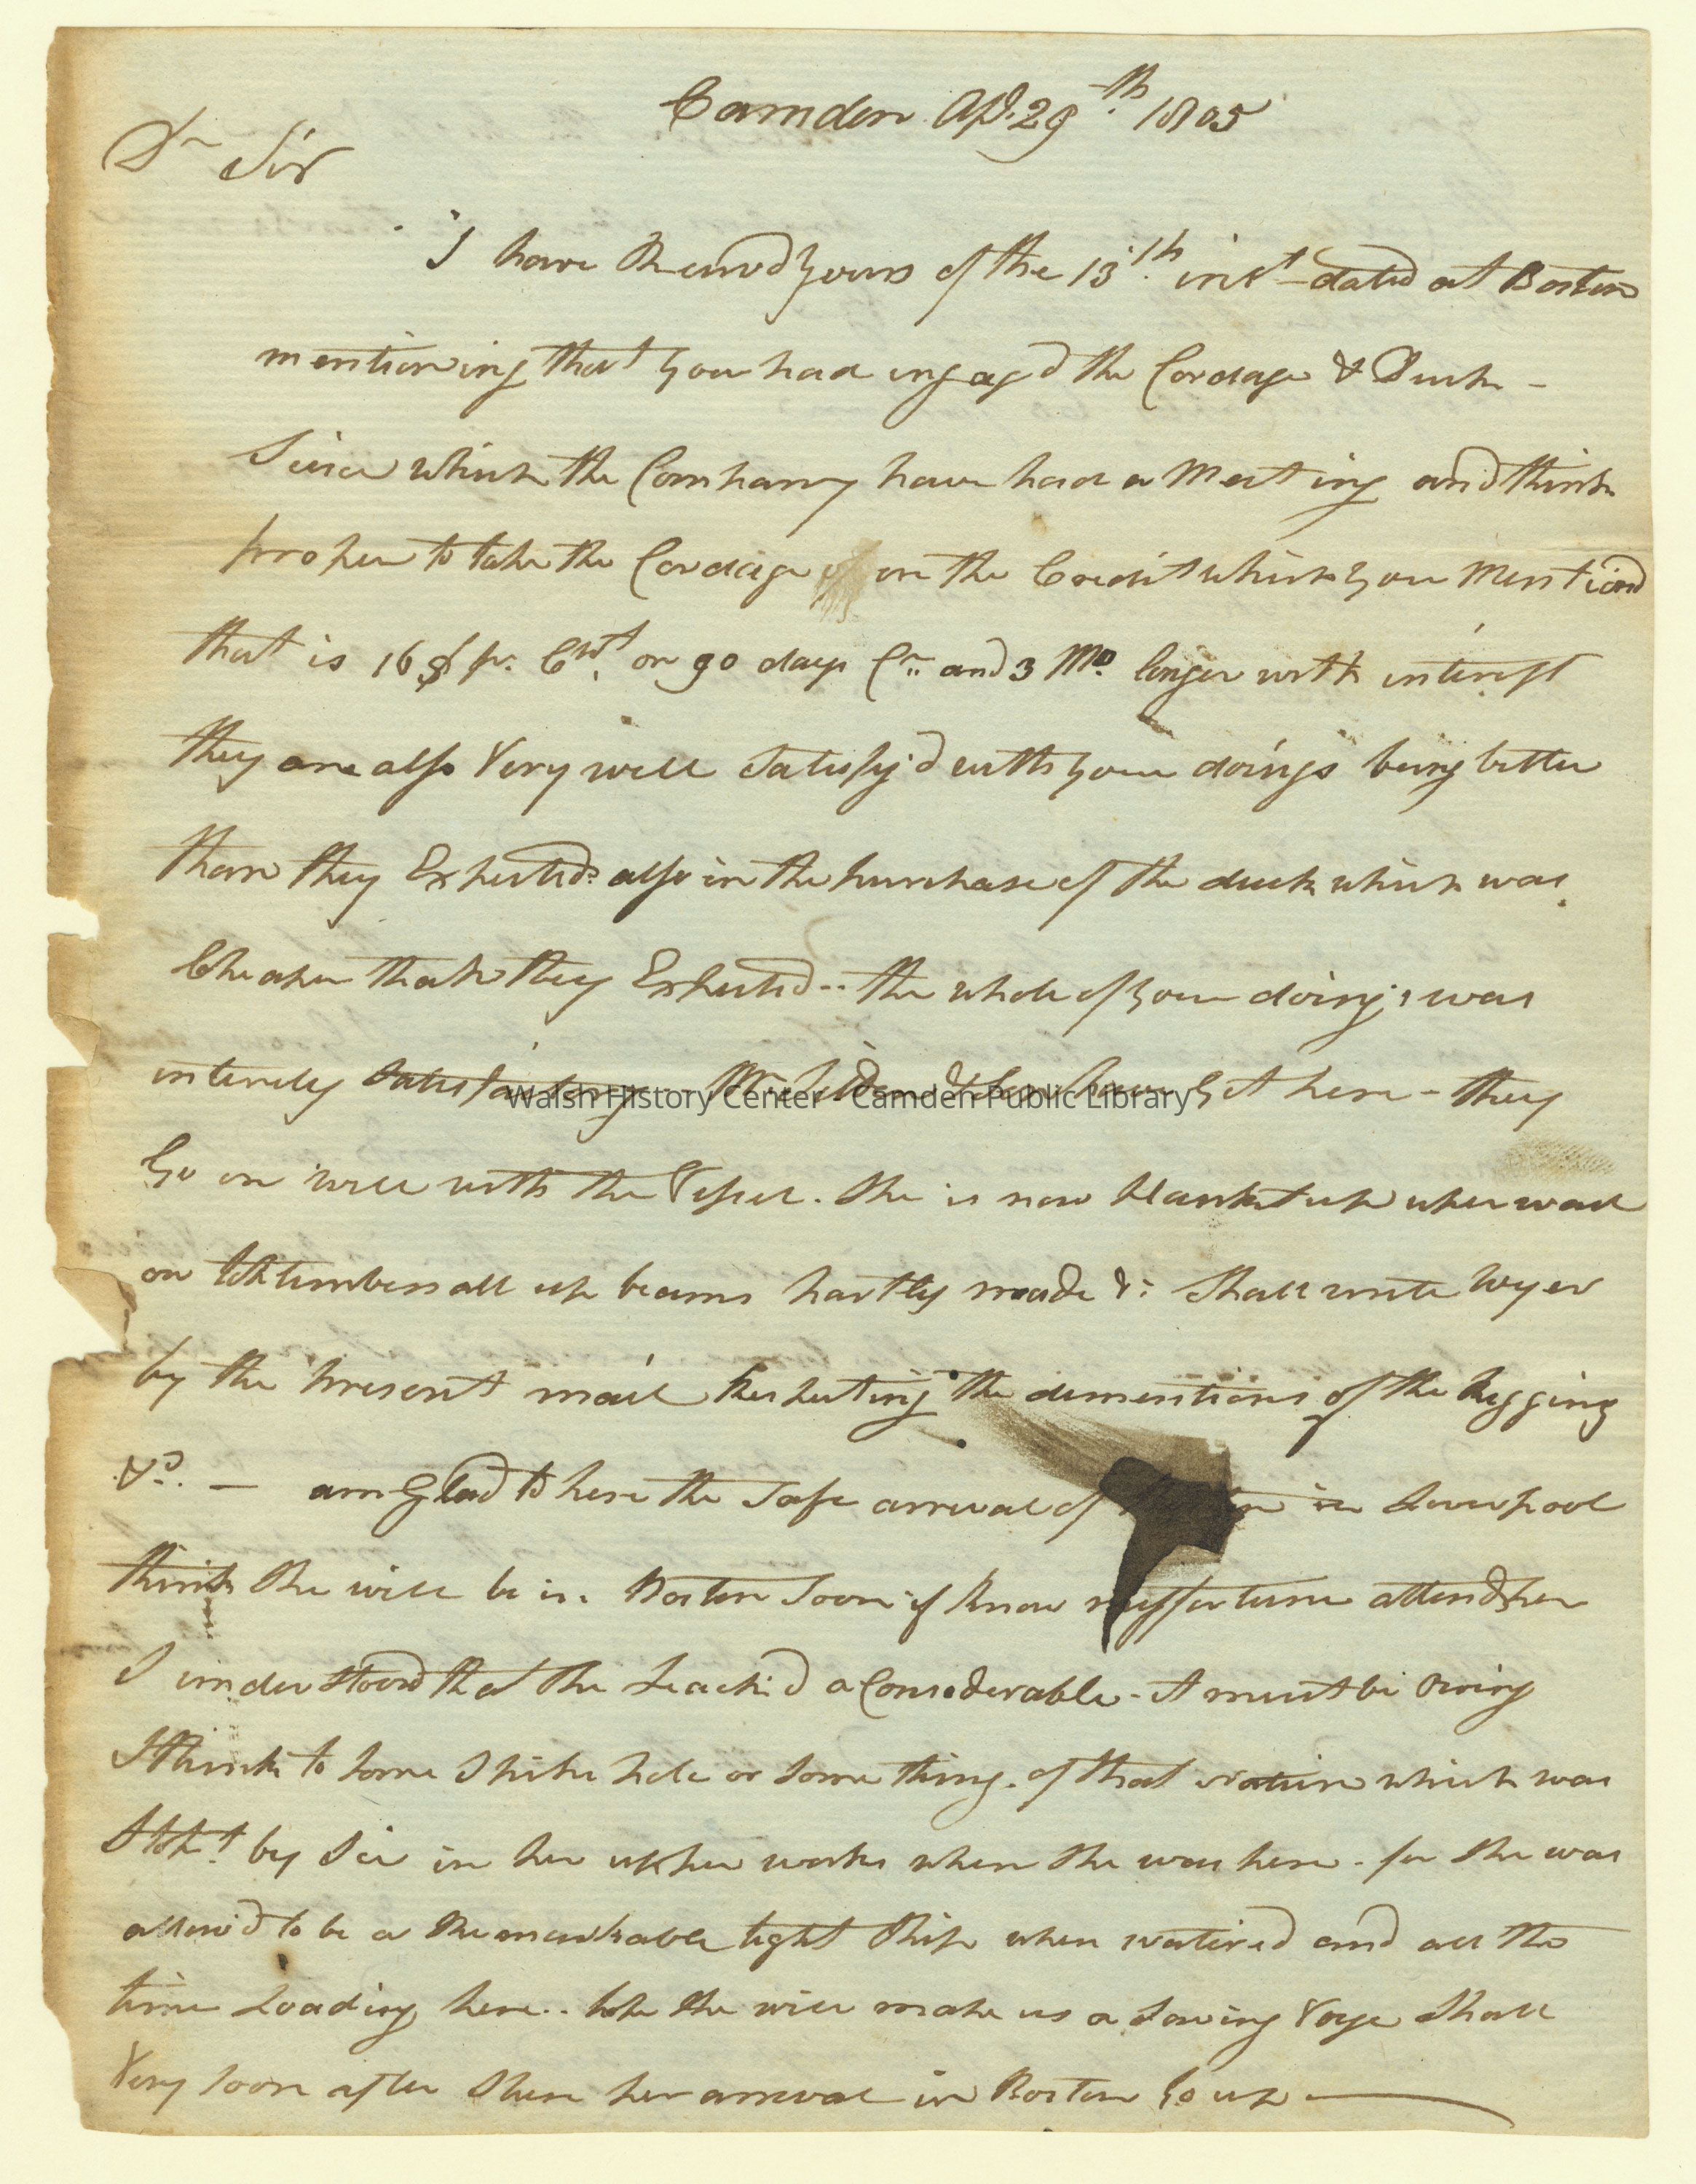 Camden Apl. 29th. 1805
Dr Sir
I have Receivd yours of the 13th. inst dated at Boston
mentioning that you had ingagd the Cordage & Duck -
Since which the Company have had a Meeting and think
proper to take the Cordage on the Credit which you Mentiond
that is 16$ pr. Cwt. on 90 days Cr. and 3 Mo. longer with interest
they are also Very well Satisfy'd with your doings being better
than they Expected also in the purchase of the duck which was
Cheaper than they Expected.. the whole of your doings was
intirely Satisfactory - Mr. & have Got here - they
Go on well with the Vessel. She is now plankt up wall
on toptimbers all up beams partly made &c Shall write Wyer
by the present mail Respecting the dementions of the Rigging
&c. — am Glad to here the Safe arrival of in Liverpool
think She will be in Boston Soon if know missfortune attend her
I understood that She Leack'd a Considerable - it must be owing
I think to Some Spike hole or Some thing of that nature which was
Stopt. by Ice in her upper works when She was here - for She was
allow'd to be a Remarkable tight Ship when watered and all the
time Loading here.. hope She will make us a Saving Voye Shall
Very Soon after I here her arrival in Boston Go up —
Walsh History Center - Camden Public Library